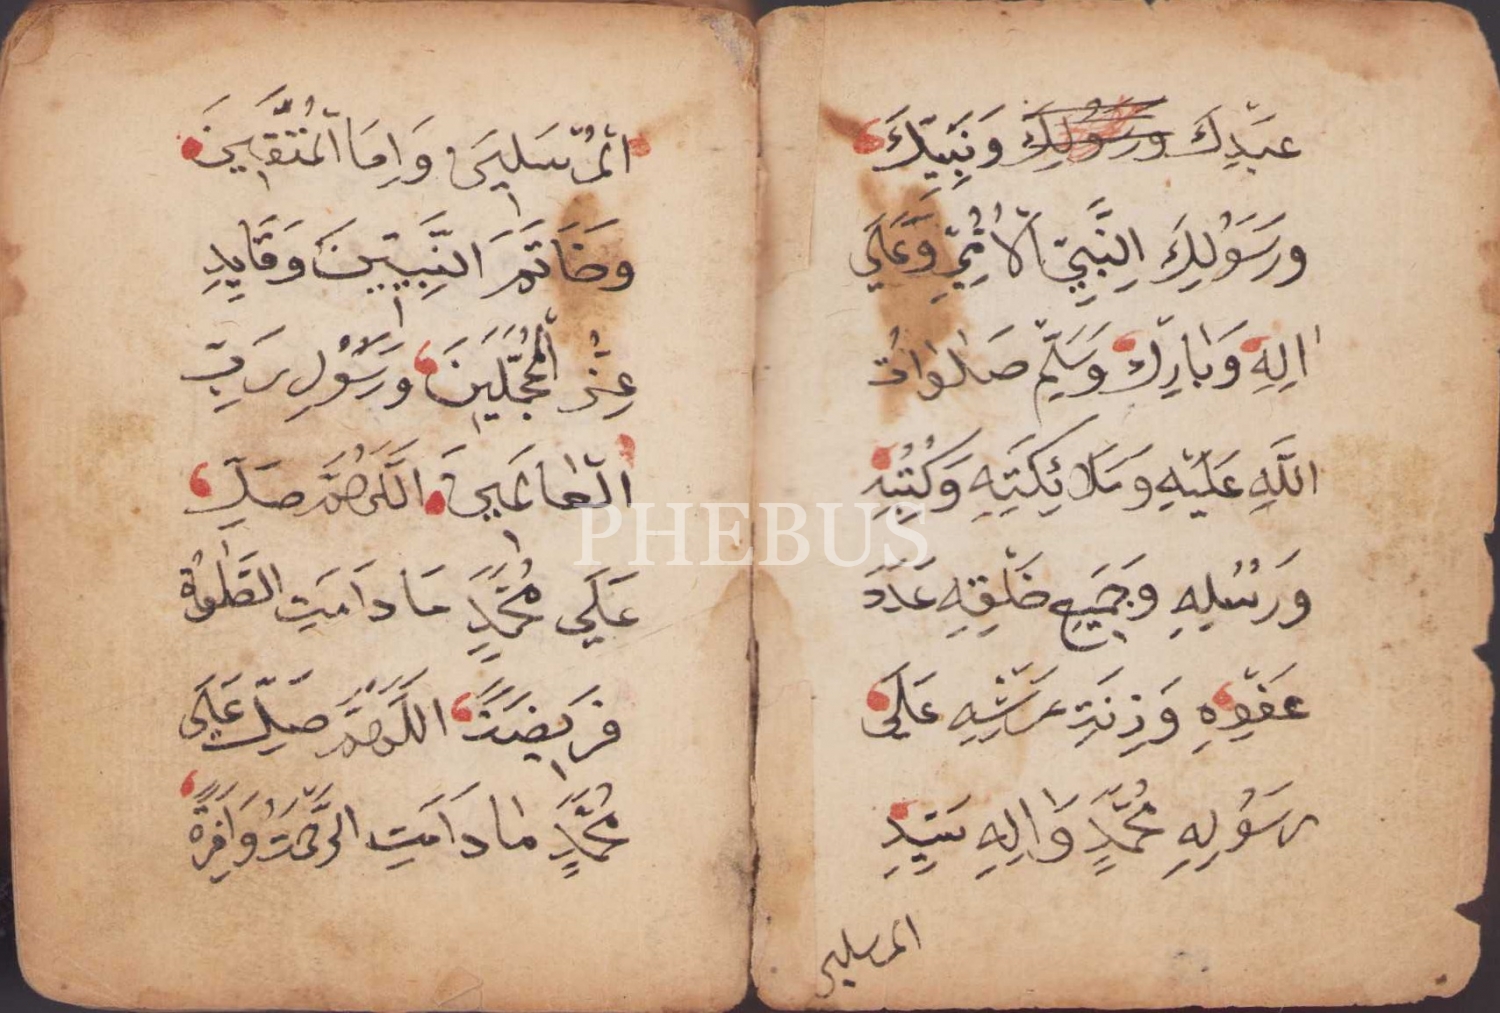 عَبْدِكَ وَرَسُولِكَ وَنَبِيِّكَ
وَرَسُولِكَ النَّبِيِّ الْاُمِّيِّ وَعَلَى
اٰلِهِ وَبَارِكْ وَسَلِّمْ صَلَوَاتُ
اللَّهِ عَلَيْهِ وَمَلَائِكَتِهِ وَكُتُبِهِ
وَرُسُلِهِ وَجَمِيعِ خَلْقِهِ عَدَدَ
عَفْوِهِ وَزِنَةِ عَرْشِهِ عَلَى
رَسُولِهِ مُحَمَّدٍ وَاٰلِهِ سَيِّدِ
المرسلين
الْمُرْسَلِينَ وَاِمَامِ الْمُتَّقِينَ
وَخَاتَمَ النَّبِيِّينَ وَقَايِدِ
غُرِّ الْمُحَجَّلِينَ وَرَسُولِ رَبِّ
الْعَالَمِينَ اللَّهُمَّ صَلِّ
عَلَى مُحَمَّدٍ مَا دَامَتِ الصَّلٰوةُ
فَرِيضَةً اللَّهُمَّ صَلِّ عَلَى
مُحَمَّدٍ مَا دَامَتِ الرَّحْمَةُ وَافِرَةً
PHEBUS